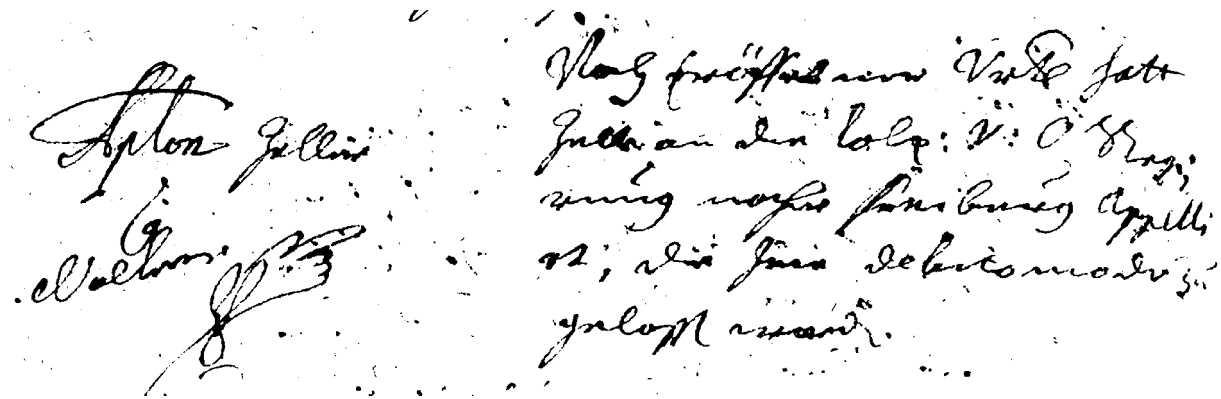 Anton Zeller
Nach eröffneter Urtl hatt
Zeller an die lobl: V: Ö Regi,
rung nacher Freiburg Appelli
rt, die Ihme debito modo zu
gelasst word.